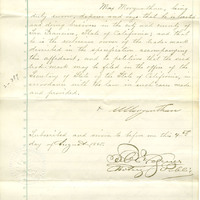 Max Morgenthau, being
duly sworn deposes and says that he resides
and doing business in the city and county of
San Francisco, State of California; and that
he is the
described in the specification accompanying
this affidavit, and in petition that the said
trade mark may be filed in the office of the
Secretary of State of the State of California, in
accordance with the law in such case made
and provided.
M Morgenthau
Subscribed and sworn to before me this 4th
day of August
Notary Public